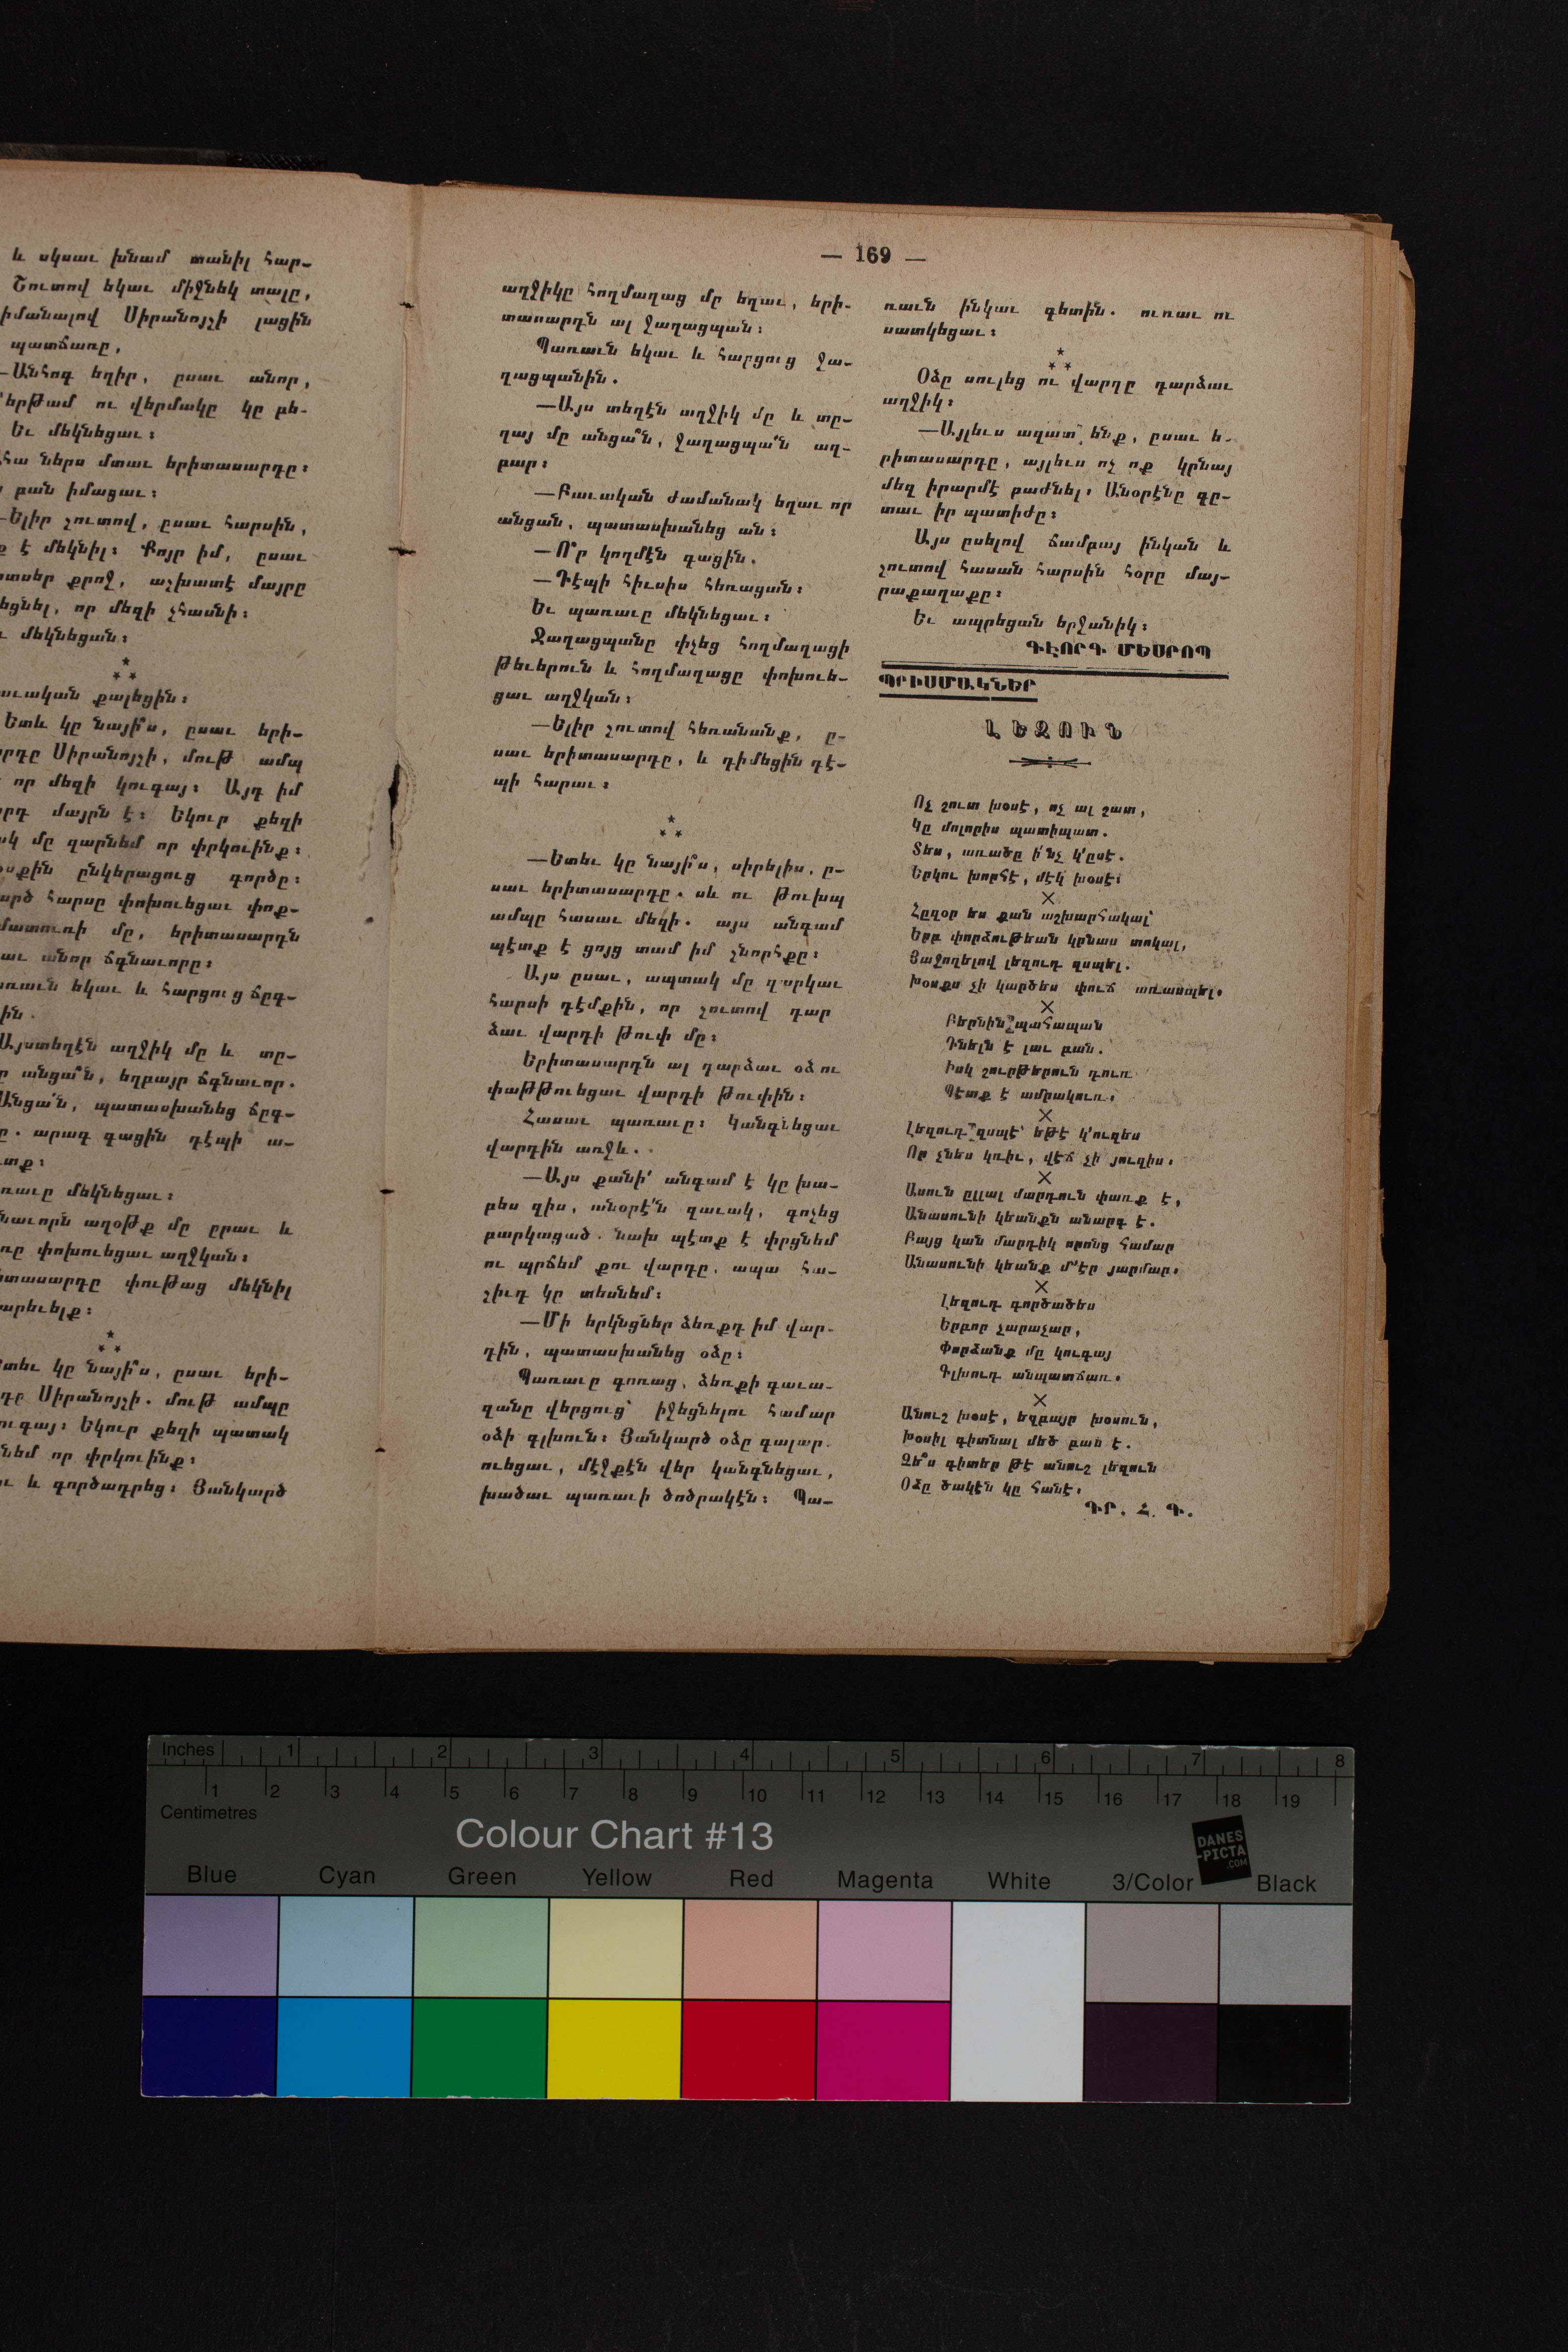 և սկսաւ խնամ տանիլ հար-
Շուտով եկաւ միջնեկ տալը,
իմանալով Սիրանոյշի լացին
պատճառը,
—Անհոգ եղիր, ըսաւ անոր,
երթամ ու վերմակը կը բե-
Եւ մեկնեցաւ։
ներս մտաւ երիտասարդը։
բան իմացաւ։
—Ելիր շուտով, ըսաւ հարսին,
է մեկնիլ։ Քոյր իմ, ըսաւ
քրոջ, աշխատէ մայրը
որ մեզի չհասնի։
մեկնեցան։
***
քալեցին։
Ետև կը նայի՞ս, ըսաւ երի-
Սիրանոյշի, մութ ամպ
որ մեզի կուգայ։ Այդ իմ
մայրն է։ Եկուր քեզի
մը զարնեմ որ փրկուինք։
ընկերացուց գործը։
հարսը փոխուեցաւ փոք-
մատուռի մը, երիտասարդն
անոր ճգնաւորը։
եկաւ և հարցուց ճըգ-
Այստեղէն աղջիկ մը և տը-
անցա՞ն, եղբայր ճգնաւոր.
Անցա՛ն, պատասխանեց ճըգ-
արագ գացին դէպի ա-
մեկնեցաւ։
աղօթք մը ըրաւ և
փոխուեցաւ աղջկան։
փութաց մեկնիլ
***
կը նայի՞ս, ըսաւ երի-
Սիրանոյշի. մութ ամպը
Եկուր քեզի պատակ
որ փրկուինք։
և գործադրեց։ Յանկարծ
— 169 —
աղջիկը հողմաղաց մը եղաւ, երի-
տասարդն ալ ջաղացպան։
Պառաւն եկաւ և հարցուց ջա-
ղացպանին.
—Այս տեղէն աղջիկ մը և տը-
ղայ մը անցա՞ն, ջաղացպա՛ն աղ-
բար։
—Բաւական ժամանակ եղաւ որ
անցան, պատասխանեց ան։
—Ո՞ր կողմէն գացին.
—Դէպի հիւսիս հեռացան։
Եւ պառաւը մեկնեցաւ։
Ջաղացպանը փչեց հողմաղացի
թեւերուն և հողմաղացը փոխուե-
ցաւ աղջկան։
—Ելիր շուտով հեռանանք, ը-
սաւ երիտասարդը, և դիմեցին դէ-
պի հարաւ։
***
—Ետեւ կը նայի՞ս, սիրելիս, ը-
սաւ երիտասարդը. սև ու թուխպ
ամպը հասաւ մեզի. այս անգամ
պէտք է ցոյց տամ իմ շնորհքը։
Այս ըսաւ, ապտակ մը զարկաւ
հարսի դէմքին, որ շուտով դար
ձաւ վարդի թուփ մը։
Երիտասարդն ալ դարձաւ օձ ու
փաթթուեցաւ վարդի թուփին։
Հասաւ պառաւը։ Կանգնեցաւ
վարդին առջև..
—Այս քանի՛ անգամ է կը խա-
բես զիս, անօրէ՛ն զաւակ, գոչեց
բարկացած. նախ պէտք է փրցնեմ
ու պրճեմ քու վարդը. ապա հա-
շիւդ կը տեսնեմ։
—Մի երկնցներ ձեռքդ իմ վար-
դին, պատասխանեց օձը։
Պառաւը գոռաց, ձեռքի գաւա-
զանը վերցուց՝ իջեցնելու համար
օձի գլխուն։ Յանկարծ օձը գալար.
ուեցաւ, մէջքէն վեր կանգնեցաւ,
խածաւ պառաւի ծոծրակէն։ Պա-
ռաւն ինկաւ գետին. ուռաւ ու
սատկեցաւ։
***
Օձը սուլեց ու վարդը դարձաւ
աղջիկ։
—Այլեւս ազատ ենք, ըսաւ ե-
րիտասարդը, այլեւս ոչ ոք կրնայ
մեզ իրարմէ բաժնել։ Անօրէնը գը-
տաւ իր պատիժը։
Այս ըսելով ճամբայ ինկան և
շուտով հասան հարսին հօրը մայ-
րաքաղաքը։
Եւ ապրեցան երջանիկ։
ԳԷՈՐԳ ՄԵՍՐՈՊ
ՊՐԻՍՄԱԿՆԵՐ
ԼԵԶՈՒՆ
Ոչ շուտ խօսէ, ոչ ալ շատ,
Կը մոլորիս պատիպատ.
Տես, առածը ի՛նչ կ՚ըսէ.
Երկու խորհէ, մէկ խօսէ։
×
Հըզօր ես քան աշխարհակալ՝
Երբ փորձութեան կրնաս տոկալ,
Յաջողելով լեզուդ զսպել.
Խօսքս չի կարծես փուճ առասպել.
×
Բերնին պահապան
Դնելն է լաւ բան.
Իսկ շուրթերուն դուռ
Պէտք է ամրակուռ.
×
Լեզուդ զսպէ՝ եթէ կ՚ուզես
Որ չնես կռիւ, վէճ չի յուզիս.
×
Ասուն ըլլալ մարդուն փառք է,
Անասունի կեանքն անարգ է.
Բայց կան մարդիկ որոնց համար
Անասունի կեանք մ՚էր յարմար.
×
Լեզուդ գործածես
Երբոր չարաչար,
Փորձանք մը կուգայ
Գլխուդ անպատճառ.
×
Անուշ խօսէ, եղբայր խօսուն,
Խօսիլ գիտնալ մեծ բան է.
Չե՞ս գիտեր թէ անուշ լեզուն
Օձը ծակէն կը հանէ.
ԳՐ. Հ. Գ.
Inches 1 2 3 4 5 6 7 8
1 2 3 4 5 6 7 8 9 10 11 12 13 14 15 16 17 18 19
Centimetres
Colour Chart #13
DANES
-PICTA
.COM
Blue Cyan Green Yellow Red Magenta White 3/Color Black